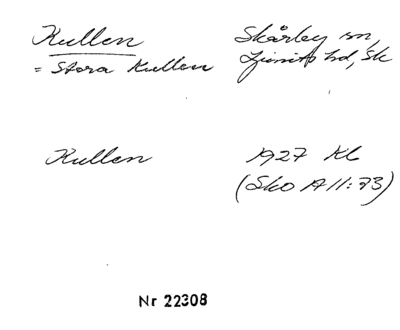 Kullen Skårby sn,
= Stora Kullen Ljunits hd, Sk
Kullen 1927 KL
(Sko A 11:73)
Nr 22308